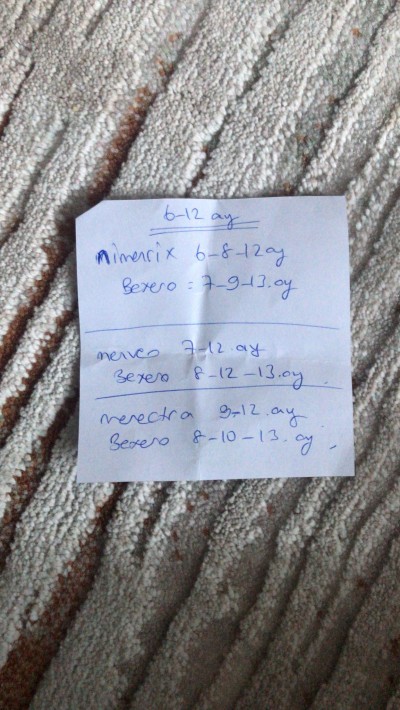 6-12 ay
nimenrix 6-8-12ay
Bexero = 7-9-13.ay
menveo 7-12.ay
Bexero 8-12-13.ay
menectra 9-12.ay
Bexero 8-10-13.ay